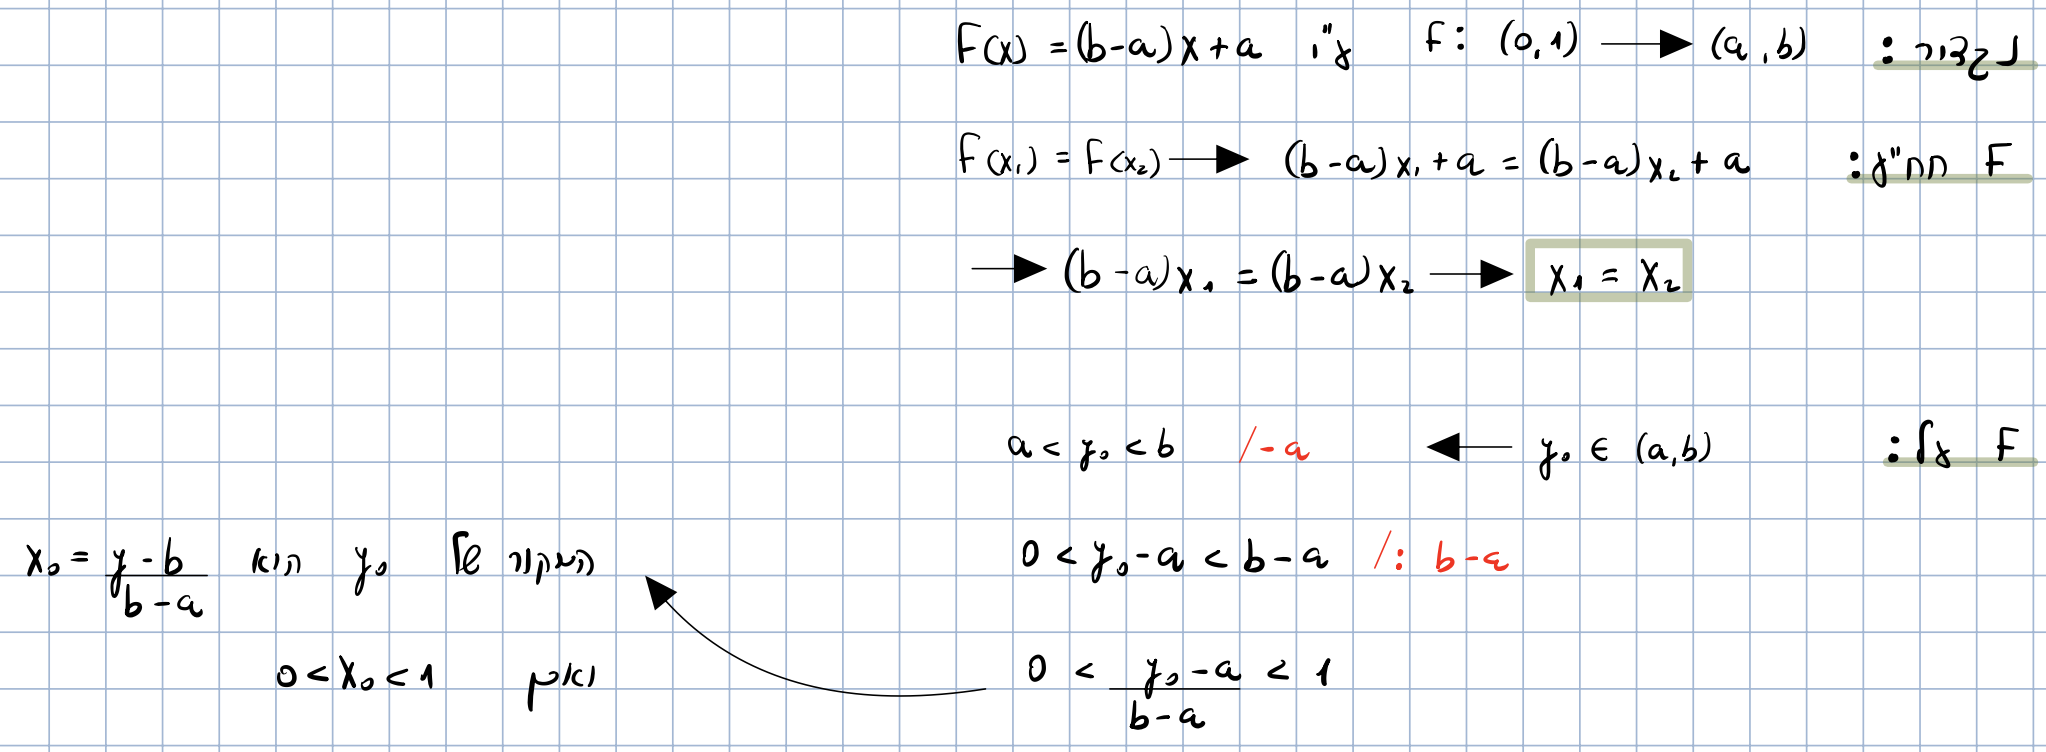 נגדיר: F: (0,1) → (a,b) ע"י F(x) = (b-a)x+a
F חח"ע: F(x₁) = F(x₂) → (b-a)x₁+a = (b-a)x₂+a
→ (b-a)x₁ = (b-a)x₂ → x₁ = x₂
F על: y₀ ∈ (a,b) ← a < y₀ < b /-a
0 < y₀-a < b-a /: b-a
המקור של y₀ הוא x₀ = (y-b)/(b-a)
0 < (y₀-a)/(b-a) < 1
ואכן 0 < x₀ < 1